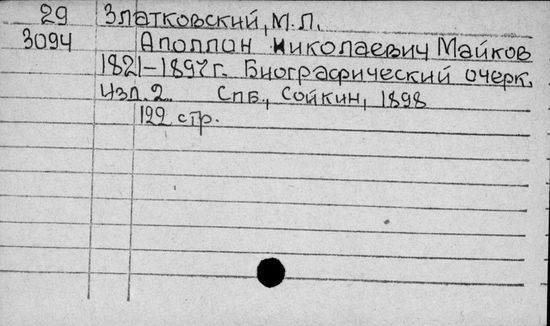 29 Златковский, М.Л.
3094 Аполлон Николаевич Майков
1821-1897г. Биографический очерк.
Изд. 2. Спб., Сойкин, 1898
122 стр.